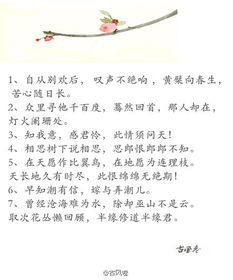 1、自从别欢后， 叹声不绝响 ，黄檗向春生，
苦心随日长。
2、众里寻他千百度，蓦然回首，那人却在，
灯火阑珊处。
3、知我意，感君怜，此情须问天！
4、相思树下说相思，思郎恨郎郎不知。
5、在天愿作比翼鸟，在地愿为连理枝。
天长地久有时尽，此恨绵绵无绝期！
6、早知潮有信，嫁与弄潮儿。
7、曾经沧海难为水，除却巫山不是云。
取次花丛懒回顾，半缘修道半缘君。